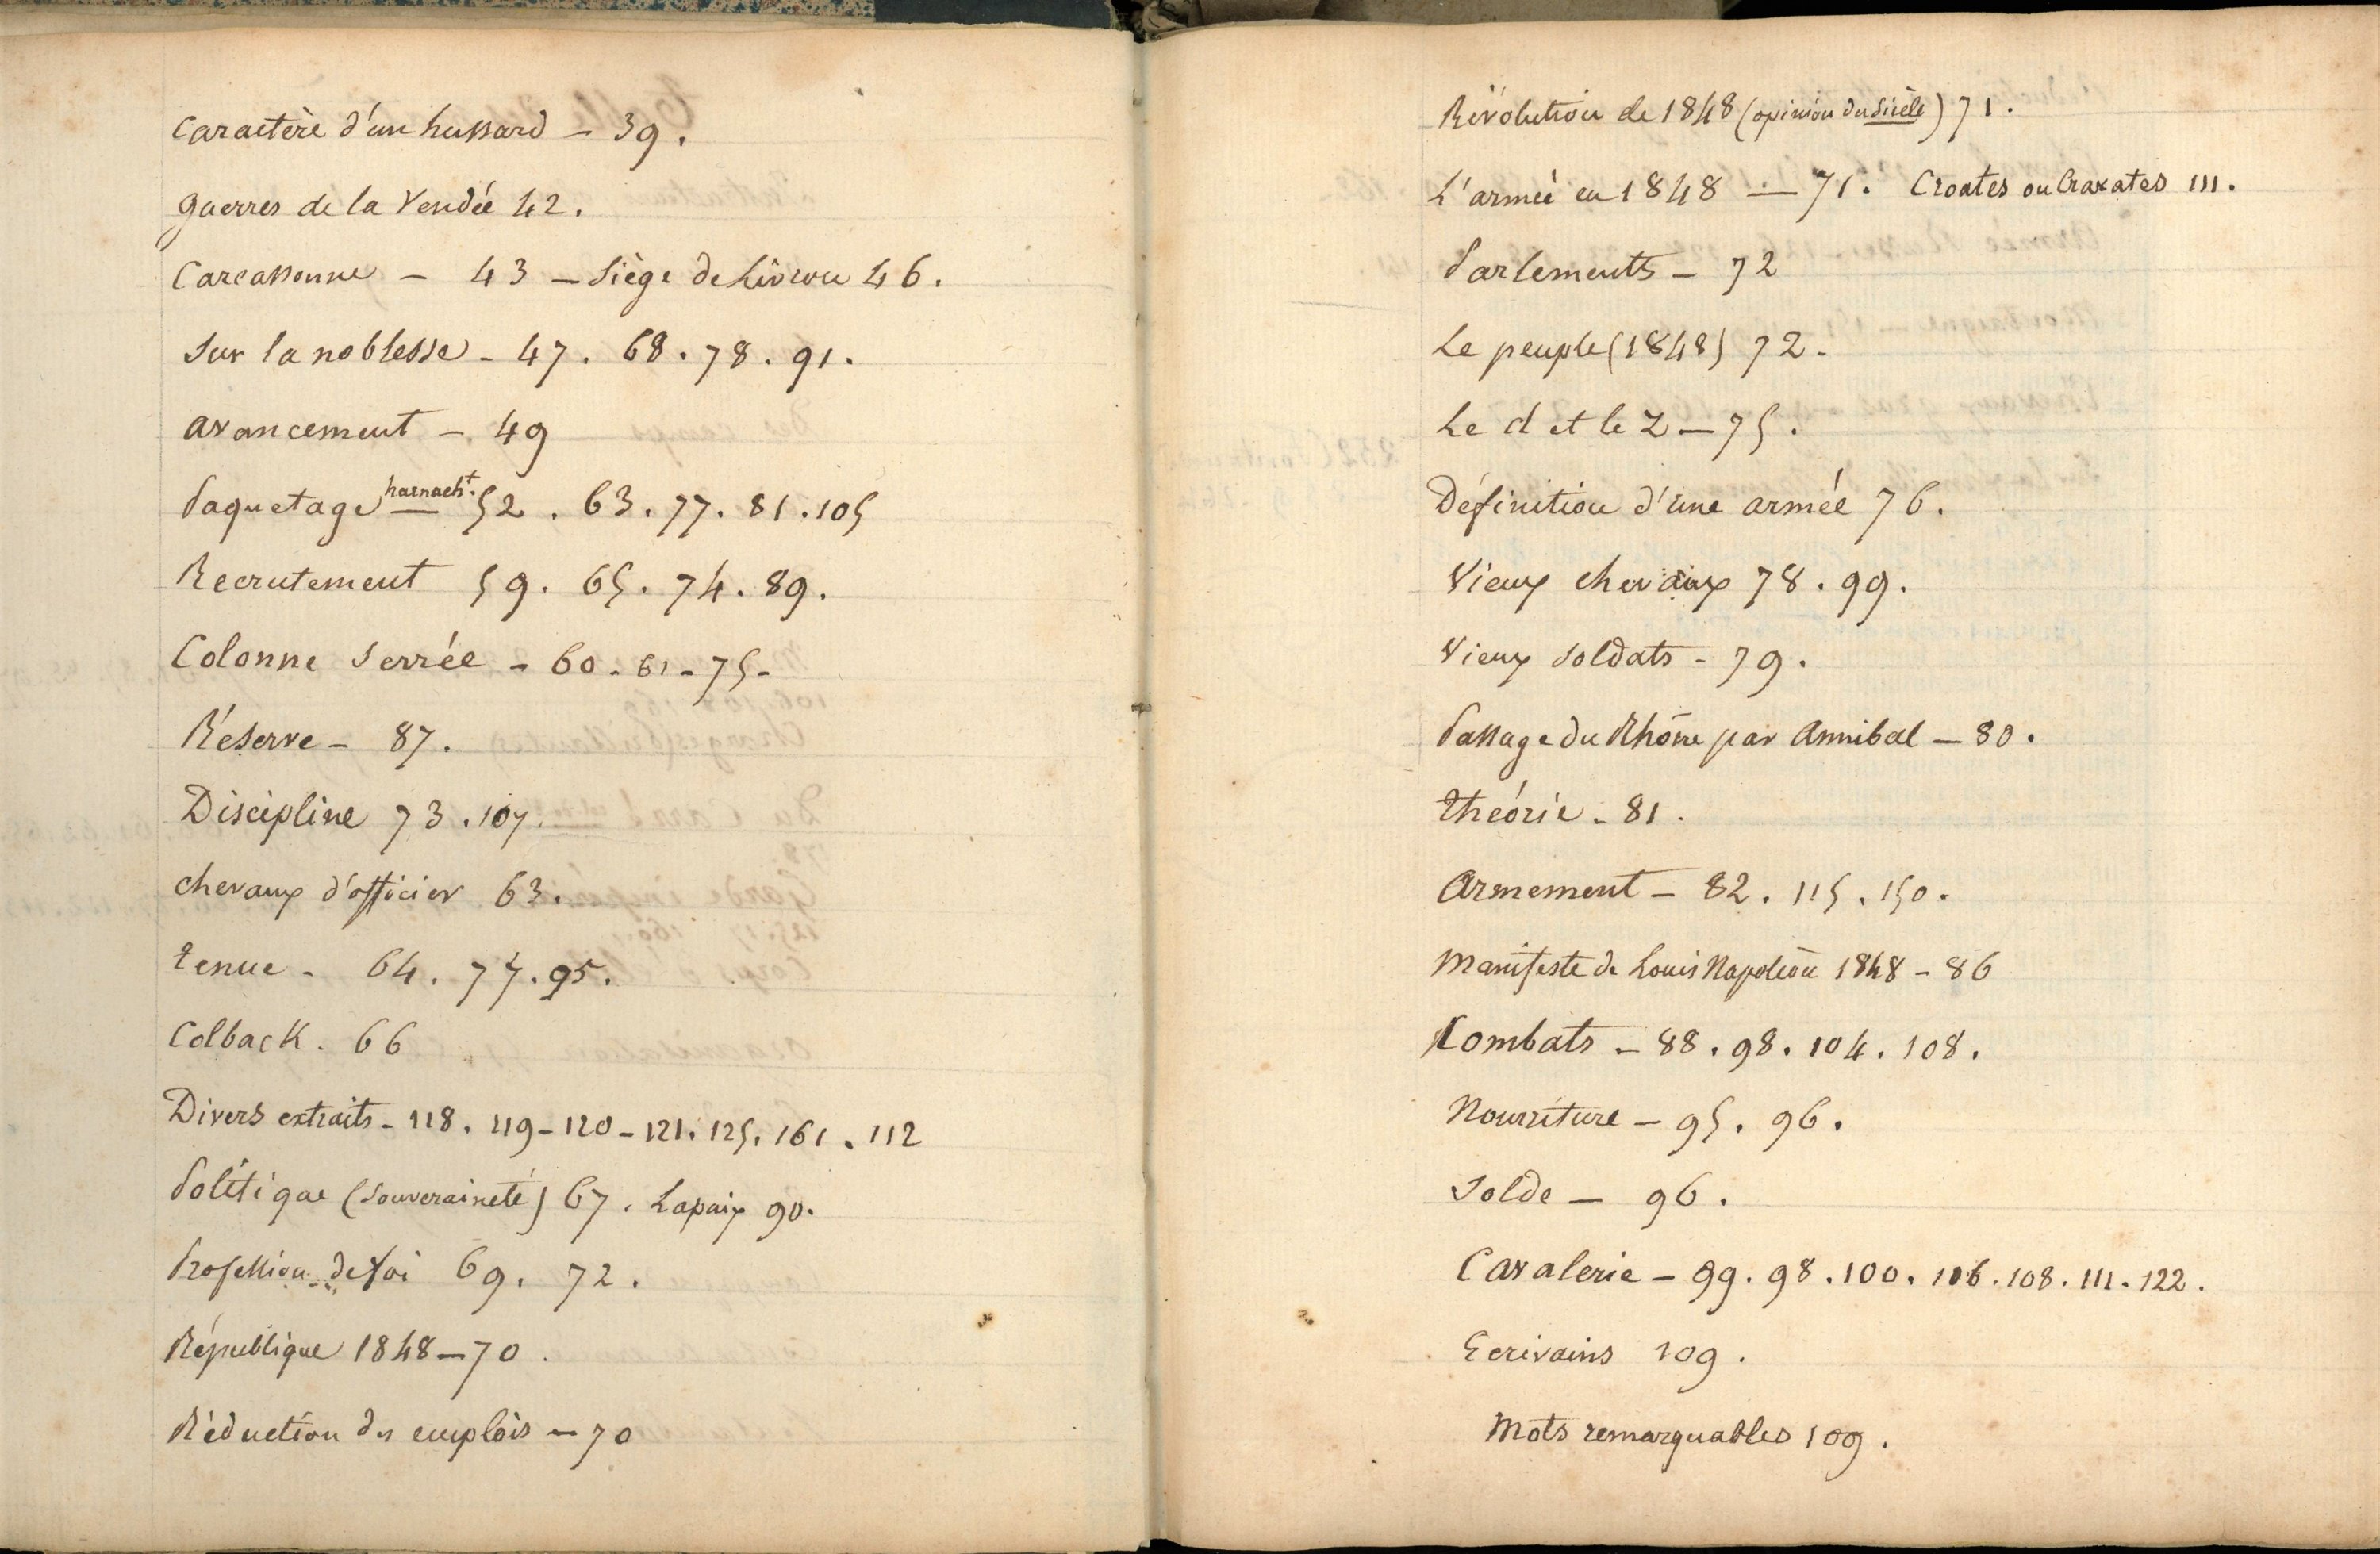 Caractère d'un hussard – 39.
guerres de la Vendée 42.
Carcassonne – 43 – Siège de Livron 46.
Sur la noblesse – 47. 68. 78. 91.
avancement – 49
Paquetage harnacht. – 52. 63. 77. 81. 105
Recrutement 59. 65. 74. 89.
Colonne serrée – 60 – 61 – 75 –
Réserve – 87.
Discipline 73. 107.
chevaux d'officier 63.
tenue – 64. 77. 95.
Colback. 66
Divers extraits – 118. 119 – 120 – 121. 125. 161. 112
Politique (souveraineté) 67. La paix 90.
Profession de foi 69. 72.
République 1848 – 70.
Réduction des emplois – 70
Révolution de 1848 (opinion du Siècle) 71.
L'armée en 1848 – 71. Croates ou Cravates 111.
Parlements – 72
Le peuple (1848) 72.
Le d et le Z – 75.
Définition d'une armée 76.
Vieux chevaux 78. 99.
Vieux soldats – 79.
Passage du Rhône par Annibal – 80.
théorie – 81.
Armement – 82. 115. 150.
Manifeste de Louis Napoléon 1848 – 86
Combats – 88. 98. 104. 108.
Nourriture – 95. 96.
Solde – 96.
Cavalerie – 99. 98. 100. 106. 108. 111. 122.
Ecrivains 109.
Mots remarquables 109.